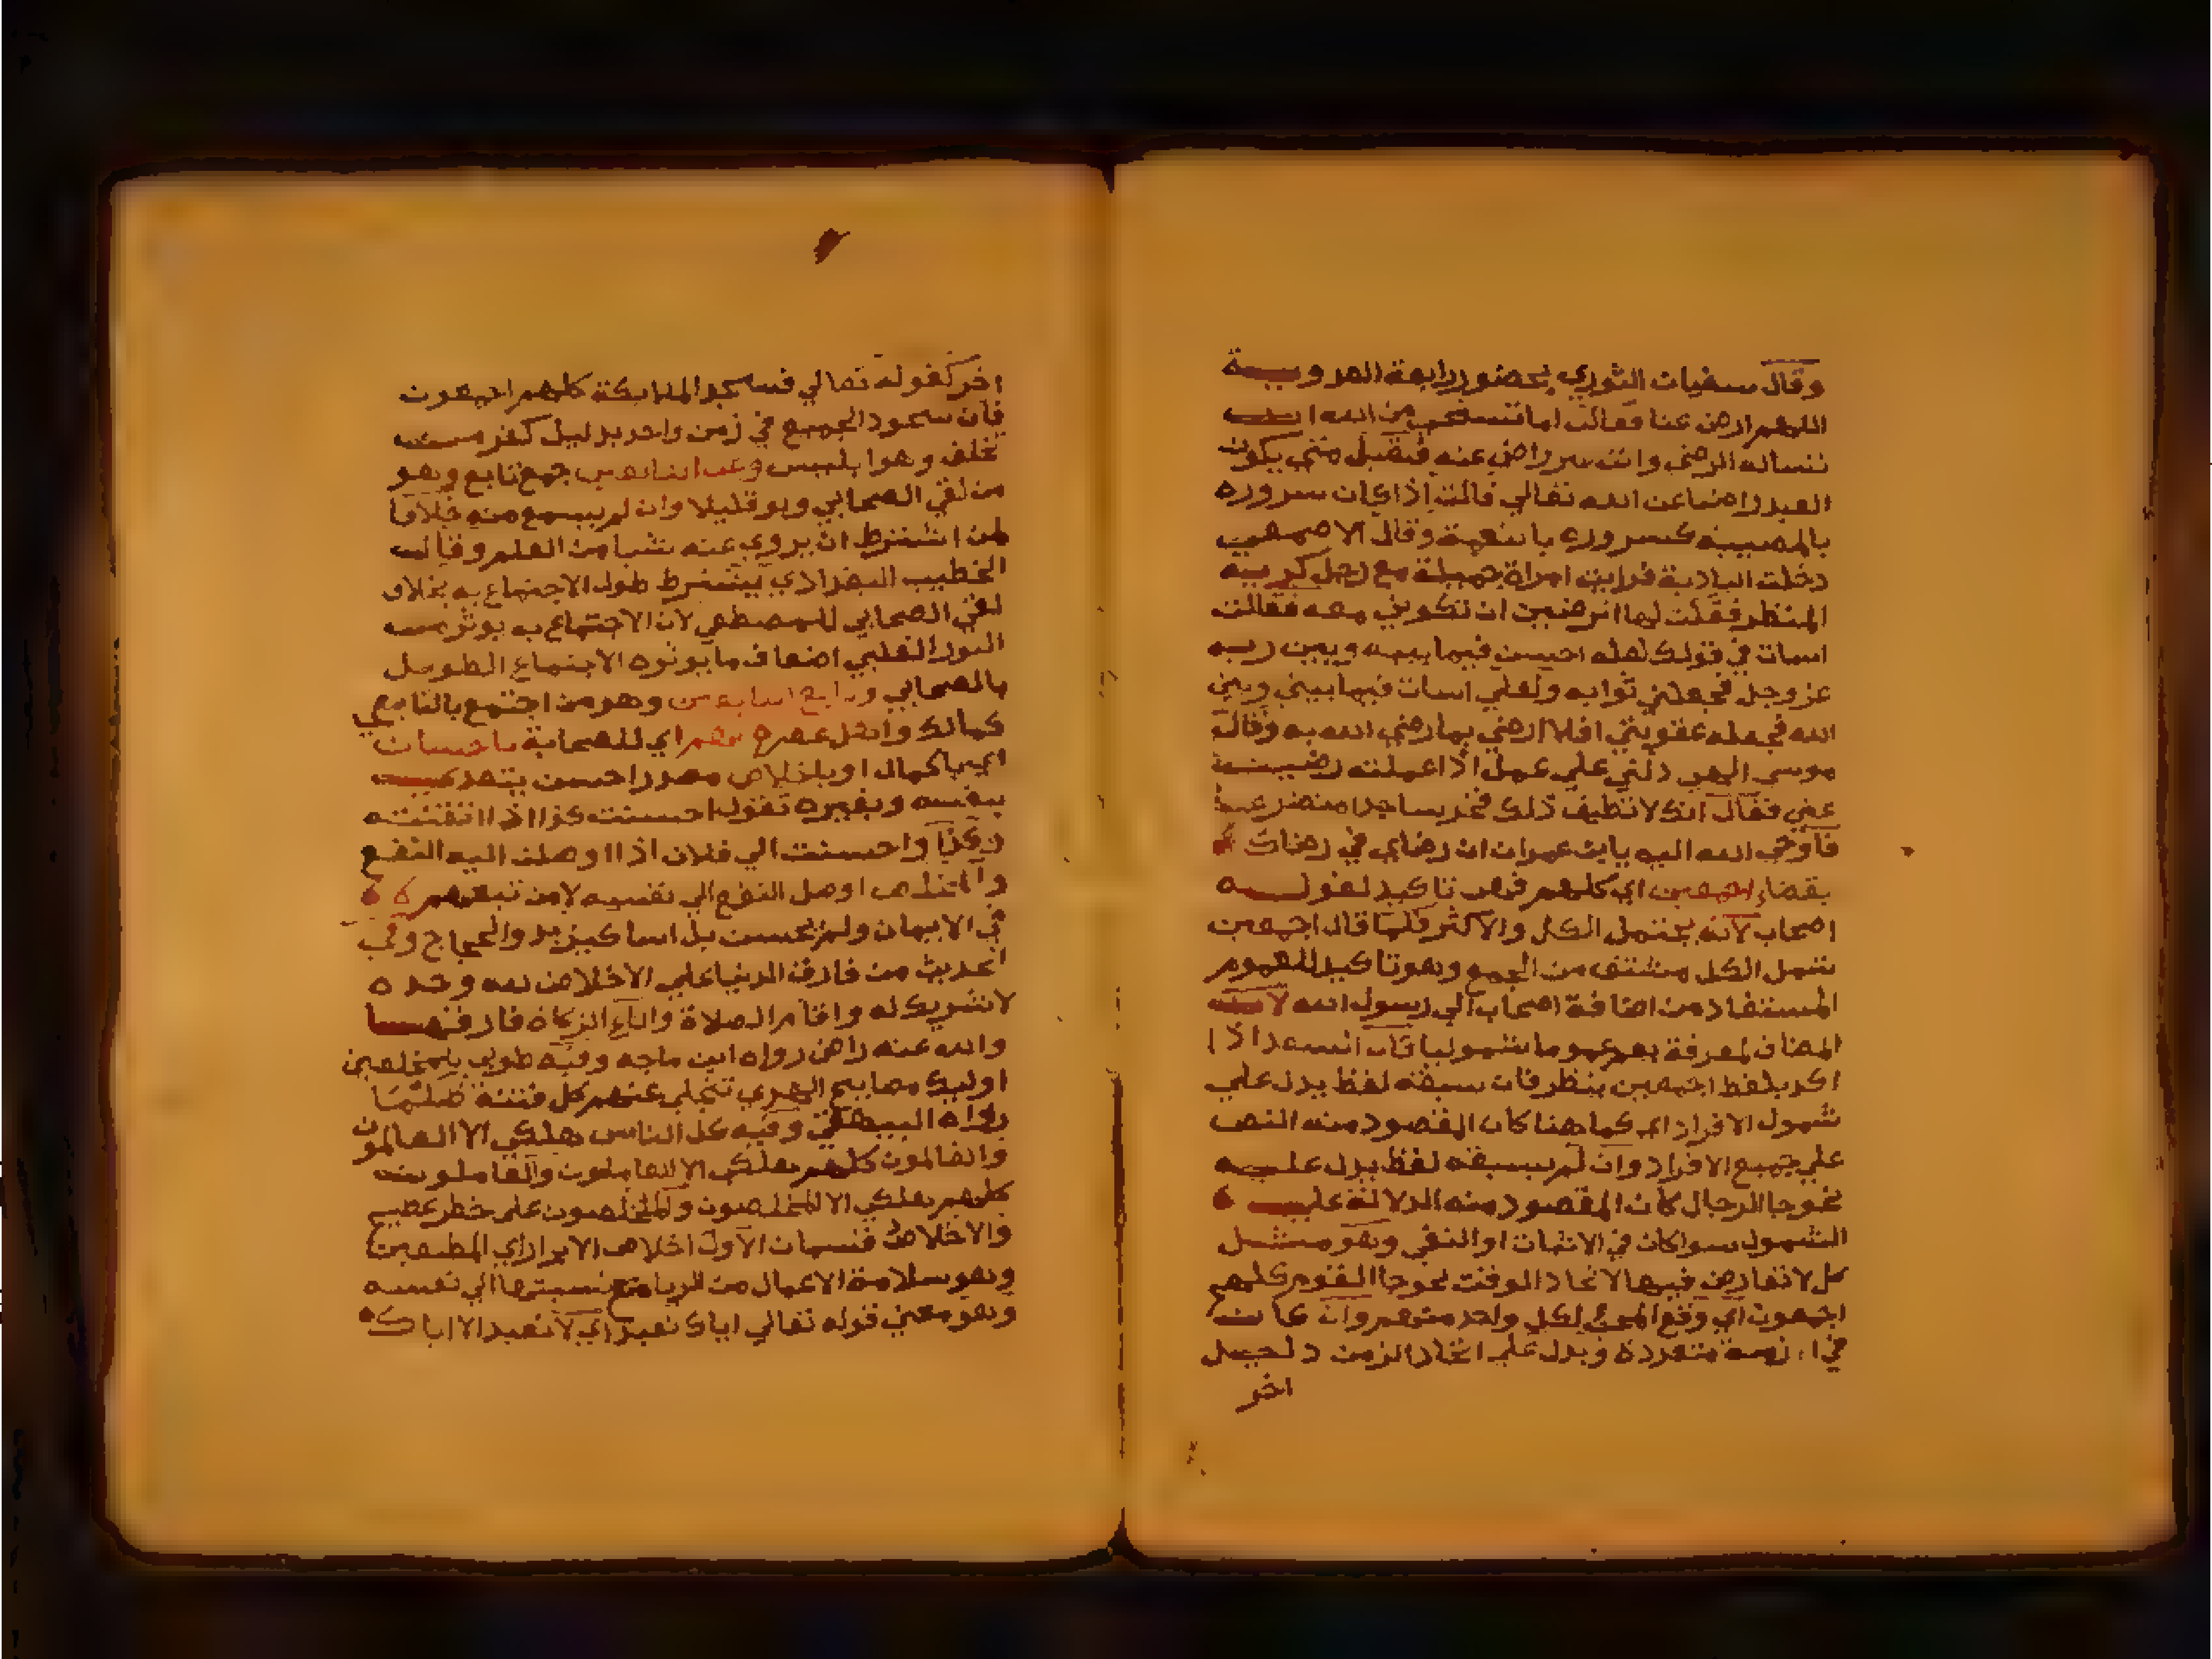 وقال سفيان الثوري بحضور رابعة العدوية
اللهم ارض عنا فقالت اما تستحي من الله ان
تساله الرضي وانت غير راض عنه فقيل متي يكون
العبد راضيا عن الله تعالي قالت اذا كان سروره
بالمصيبة كسروره بالنعمة وقال الاصمعي
دخلت البادية فرايت امراة جميلة مع رجل كريه
المنظر فقلت لها اترضين ان تكوني معه فقالت
اسات في قولك لعله احسن فيما بينه وبين ربه
عز وجل فجعلني ثوابه ولعلي اسات فيما بيني وبين
الله فجعله عقوبتي افلا ارضي بما رضي الله به وقال
موسي الهي دلني علي عمل اذا عملته رضيت
عني فقال انك لا تطيق ذلك فخر ساجدا متضرعا
فاوحي الله اليه يا ابن عمران ان رضاي في رضاك
بقضاي اجمعين اي كلهم فهو تاكيد لقوله
اصحاب لانه يحتمل الكل والاكثر فلما قال اجمعين
شمل الكل مشتق من الجمع وهو تاكيد للعموم
المستفاد من اضافة اصحاب الي رسول الله لان
المضاف لمعرفة يعم عموما شموليا قال السعد اذا
اكد بلفظ اجمعين ينظر فان سبقه لفظ يدل علي
شمول الافراد اي كما هنا كان المقصود منه النص
علي جميع الافراد وان لم يسبقه لفظ يدل عليه
نحو جا الرجال كان المقصود منه الدلالة علي
الشمول سوا كان في الاثبات او النفي وهو مثل
كل لا تعارض فيها لاتحاد الوقت نحو جا القوم كلهم
اجمعون اي وقع المجئ لكل واحد منهم وان كان
في ازمنة متعددة ويدل علي اتحاد الزمن دليل
اخر
اخر كقوله تعالي فسجد الملايكة كلهم اجمعون
فان سجود الجميع في زمن واحد بدليل كفر من
تخلف وهو ابليس وعن التابعين جمع تابع وهو
من لقي الصحابي ولو قليلا وان لم يسمع منه خلافا
لمن اشترط ان يروي عنه شيا من العلم وقال
الخطيب البغدادي يشترط طول الاجتماع به بخلاف
لقي الصحابي للمصطفي لان الاجتماع به يوثر من
النور القلبي اضعاف ما يوثره الاجتماع الطويل
بالصحابي وتابع التابعين وهو من اجتمع بالتابعي
كمالك واهل عصره لهم اي للصحابة باحسان
اي باكمال او باخلاص مصدر احسن يتعدي
بنفسه وبغيره تقول احسنت كذا اذا اتقنته
وكذا واحسنت الي فلان اذا اوصلت اليه النفع
والمخلص اوصل النفع الي نفسه لا من تبعهم
في الايمان ولم يحسن بل اسا كيزيد والحجاج وفي
الحديث من فارق الدنيا علي الاخلاص لله وحده
لا شريك له واقام الصلاة وايتاء الزكاة فارقها
والله عنه راض رواه ابن ماجه وفيه طوبي للمخلصين
اوليك مصابيح الهدي تنجلي عنهم كل فتنة ظلما
رواه البيهقي وفيه كل الناس هلكي الا العالمون
والعالمون كلهم هلكي الا العاملون والعاملون
كلهم هلكي الا المخلصون والمخلصون علي خطر عظيم
والاخلاص قسمان الاول اخلاص الابرار اي المطيعين
وهو سلامة الاعمال من الريا مع نسبتها الي نفسه
وهو معني قوله تعالي اياك نعبد اي لا نعبد الا اياك